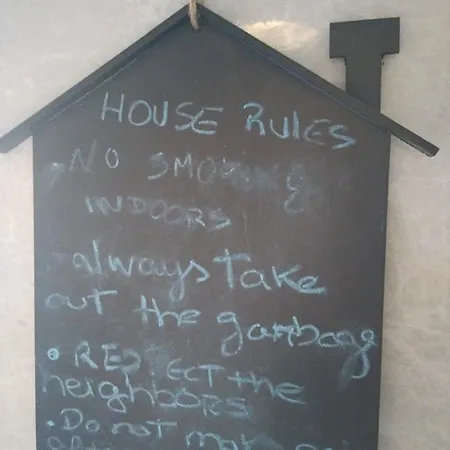 HOUSE RULES
- NO SMOKING
INDOORS
- always take
out the garbage
• RESPECT the
neighbors
• Do not